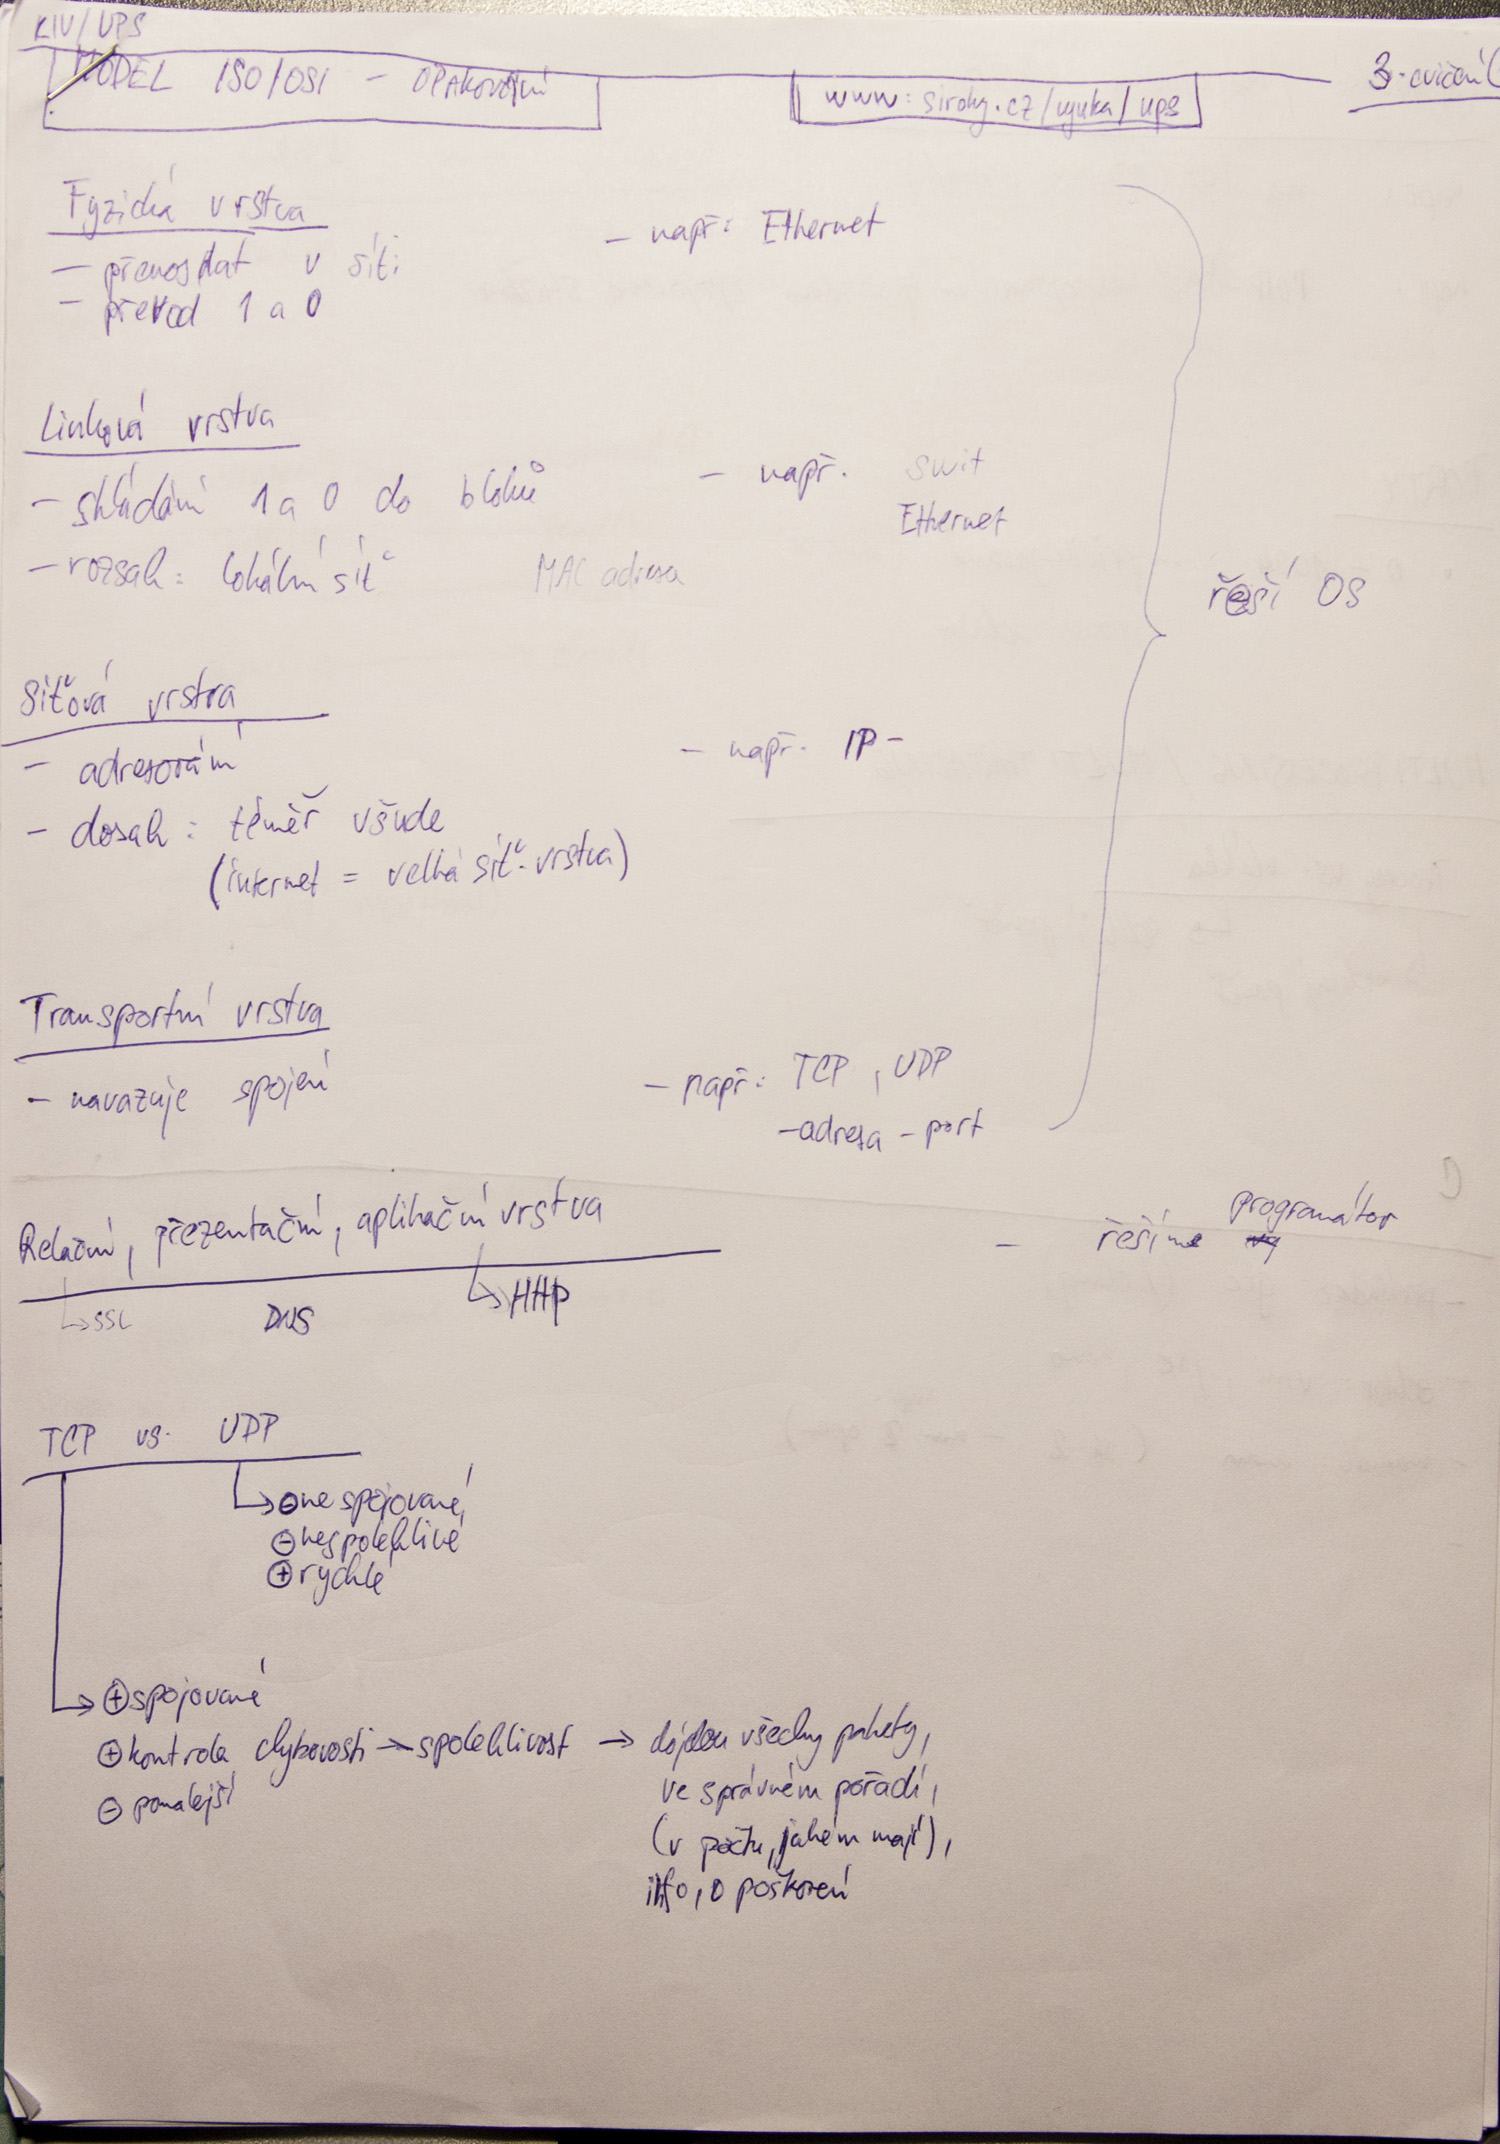 KIV/UPS
MODEL ISO/OSI - OPAKOVÁNÍ
www: siroky.cz/vyuka/ups
3. cvičení
Fyzická vrstva
- přenos dat v síti
- převod 1 a 0
- např: Ethernet
Linková vrstva
- skládání 1 a 0 do bloků
- rozsah: lokální síť
MAC adresa
- např. swit
Ethernet
řeší OS
Síťová vrstva
- adresování
- dosah: téměř všude
(internet = velká síť. vrstva)
- např. IP -
Transportní vrstva
- navazuje spojení
- např: TCP, UDP
- adresa - port
Relační, přezentační, aplikační vrstva
- řešíme programátor
↳ SSL
DNS
↳ HTTP
TCP vs. UDP
↳ ⊖ nespojované,
⊖ nespolehlivé
⊕ rychlé
↳ ⊕ spojované
⊕ kontrola chybovosti → spolehlivost → dojdou všechny pakety,
ve správném pořadí,
(v počtu, jakém mají),
info, o poškození
⊖ pomalejší